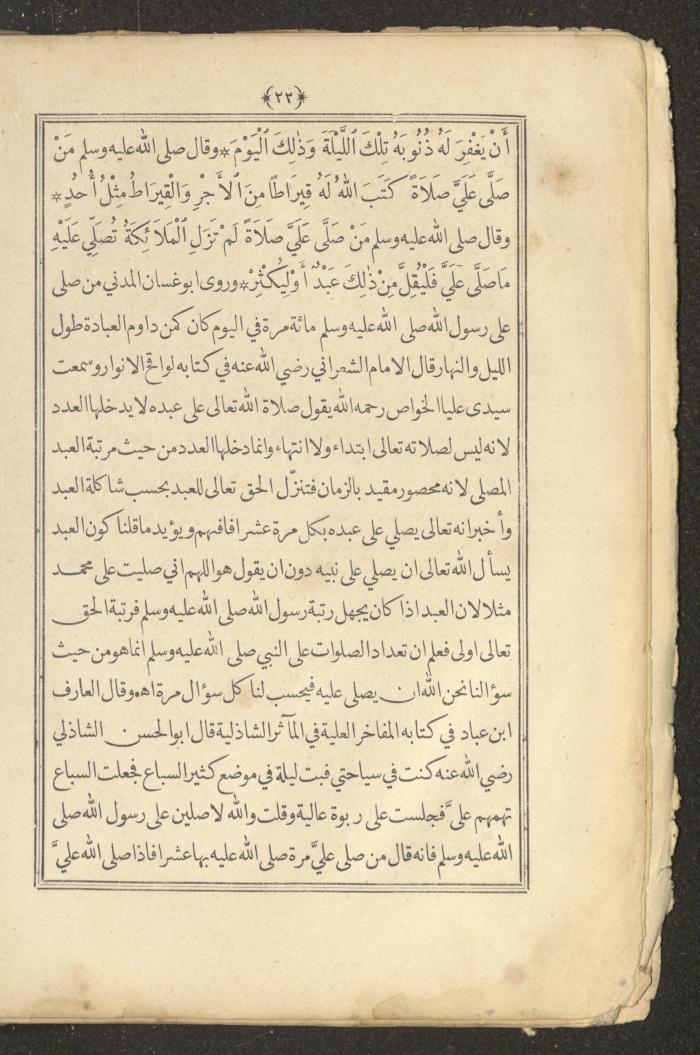 ﴿٢٢﴾
أَنْ يَغْفِرَ لَهُ ذُنُوبَهُ تِلْكَ ٱللَّيْلَةَ وَذٰلِكَ ٱلْيَوْمَ * وقال صلى الله عليه وسلم مَنْ
صَلَّى عَلَيَّ صَلَاةً كَتَبَ اللهُ لَهُ قِيرَاطًا مِنَ ٱلْأَجْرِ وَٱلْقِيرَاطُ مِثْلُ أُحُدٍ *
وقال صلى الله عليه وسلم مَنْ صَلَّى عَلَيَّ صَلَاةً لَمْ تَزَلِ ٱلْمَلَائِكَةُ تُصَلِّي عَلَيْهِ
مَا صَلَّى عَلَيَّ فَلْيُقِلَّ مِنْ ذٰلِكَ عَبْدٌ أَوْ لِيُكْثِرْ * وروى ابو غسان المدني من صلى
على رسول الله صلى الله عليه وسلم مائة مرة في اليوم كان كمن داوم العبادة طول
الليل والنهار قال الامام الشعراني رضي الله عنه في كتابه لواقح الانوار وسمعت
سيدى عليا الخواص رحمه الله يقول صلاة الله تعالى على عبده لا يدخلها العدد
لانه ليس لصلاته تعالى ابتداء ولا انتهاء وانما دخلها العدد من حيث مرتبة العبد
المصلي لانه محصور مقيد بالزمان فتنزّل الحق تعالى للعبد بحسب شاكلة العبد
وأخبر انه تعالى يصلي على عبده بكل مرة عشرا فافهم ويؤيد ما قلنا كون العبد
يسأل الله تعالى ان يصلي على نبيه دون ان يقول هو اللهم اني صليت على محمد
مثلا لان العبد اذا كان يجهل رتبة رسول الله صلى الله عليه وسلم فرتبة الحق
تعالى اولى فعلم ان تعداد الصلوات على النبي صلى الله عليه وسلم انما هو من حيث
سؤالنا نحن الله ان يصلي عليه فيحسب لنا كل سؤال مرة اهـ وقال العارف
ابن عباد في كتابه المفاخر العلية في المآثر الشاذلية قال ابو الحسن الشاذلي
رضي الله عنه كنت في سياحتي فبت ليلة في موضع كثير السباع فجعلت السباع
تهمهم عليَّ فجلست على ربوة عالية وقلت والله لاصلين على رسول الله صلى
الله عليه وسلم فانه قال من صلى عليَّ مرة صلى الله عليه بها عشرا فاذا صلى الله عليَّ